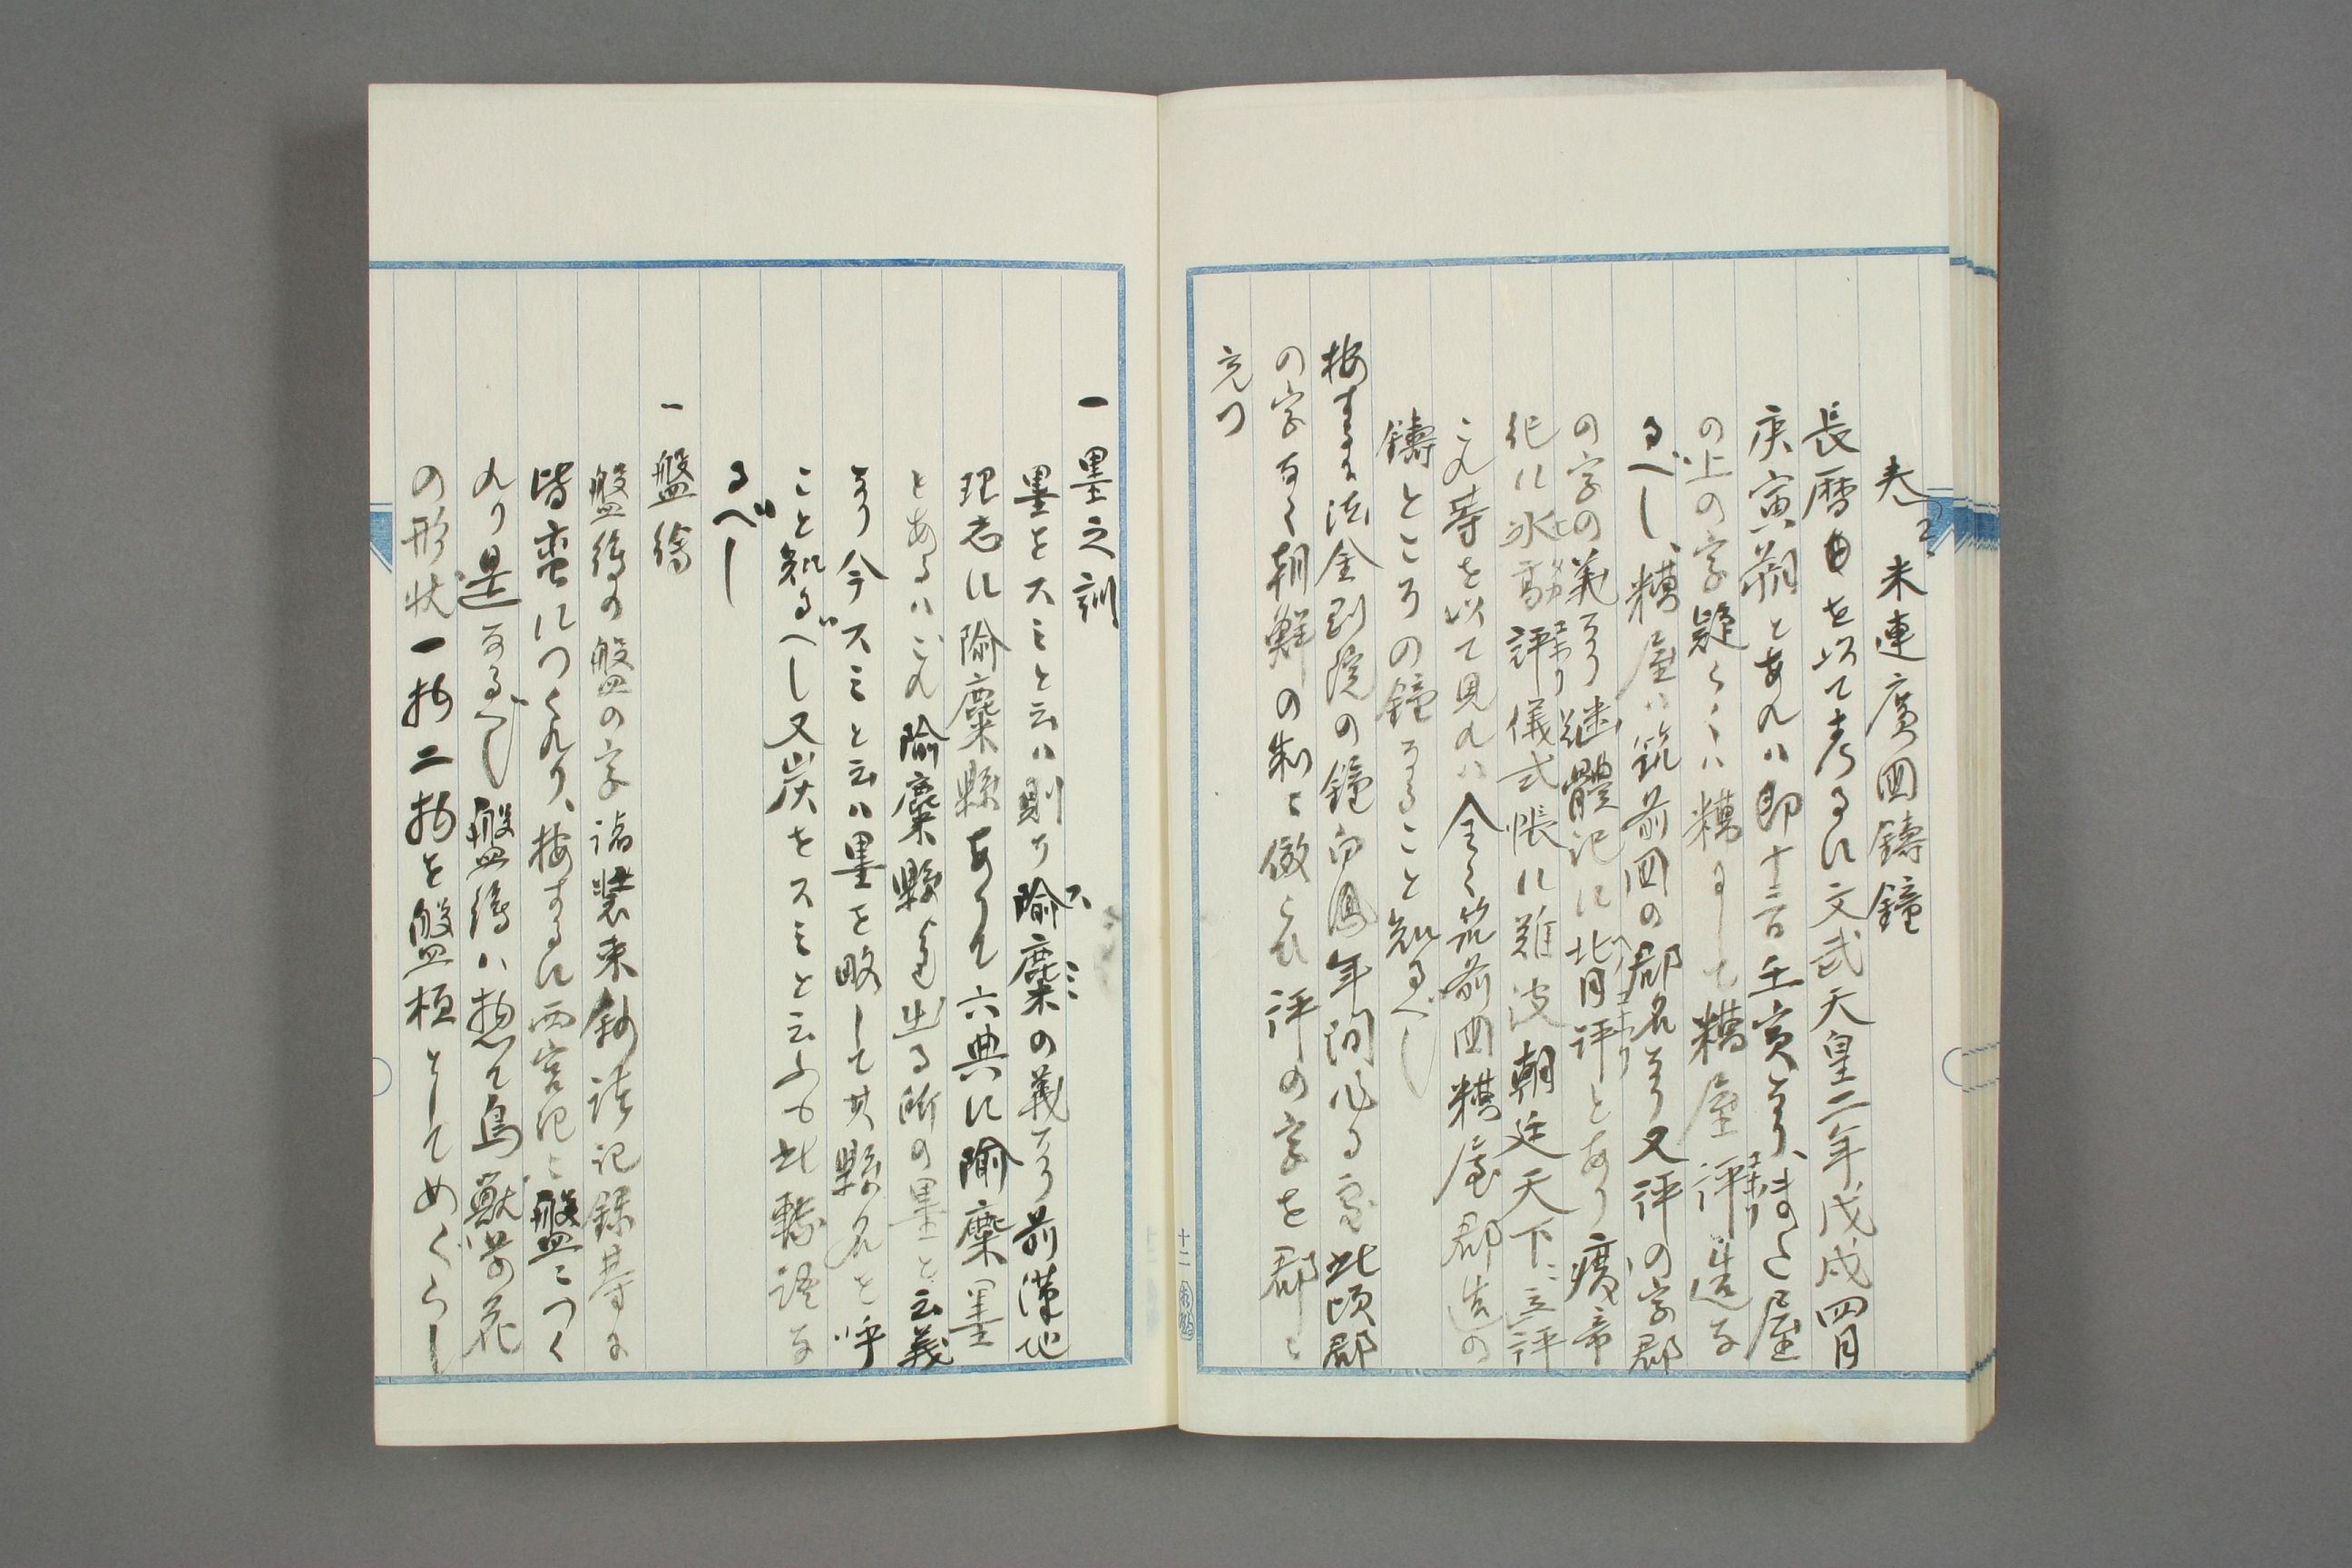 春 米連廣國鑄鐘
長曆を以て考るに文武天皇二年戊戌四月
庚寅朔とあれハ即十三日壬寅なり、またく屋
の上の字疑らくハ糟にして糟屋評造な
るべし、糟屋ハ筑前國の郡名なり又評の字郡
の字の義なり継體記に北月評とあり廣帝
紀に水高評儀式帳に難波朝廷天下ニ立評
これ等を以て見れハ全く筑前國糟屋郡造の
鑄ところの鐘なること知るべし
按するに法金剛院の鐘白鳳年間に係る 此頃郡
の字なく朝鮮の制に倣らひ評の字を郡に
充つ
十二
一 墨之訓
墨をスミと云ハ則チ隃麋の義なり前漢地
理志に隃麋縣ありて六典に隃麋墨
とあるハこれ隃麋縣より出る所の墨と云義
なり今スミと云ハ墨を略して其縣名を呼
こと知るべし又炭をスミと云ふも此轉語な
るべし
一 盤繪
盤繪の盤の字諸装束鈔諸記錄等に
皆蛮につくれり、按するに西宮記ニ盤ニつく
れり是なるべし盤繪ハ惣て鳥獣草花
の形状一物二物を盤桓としてめぐらし